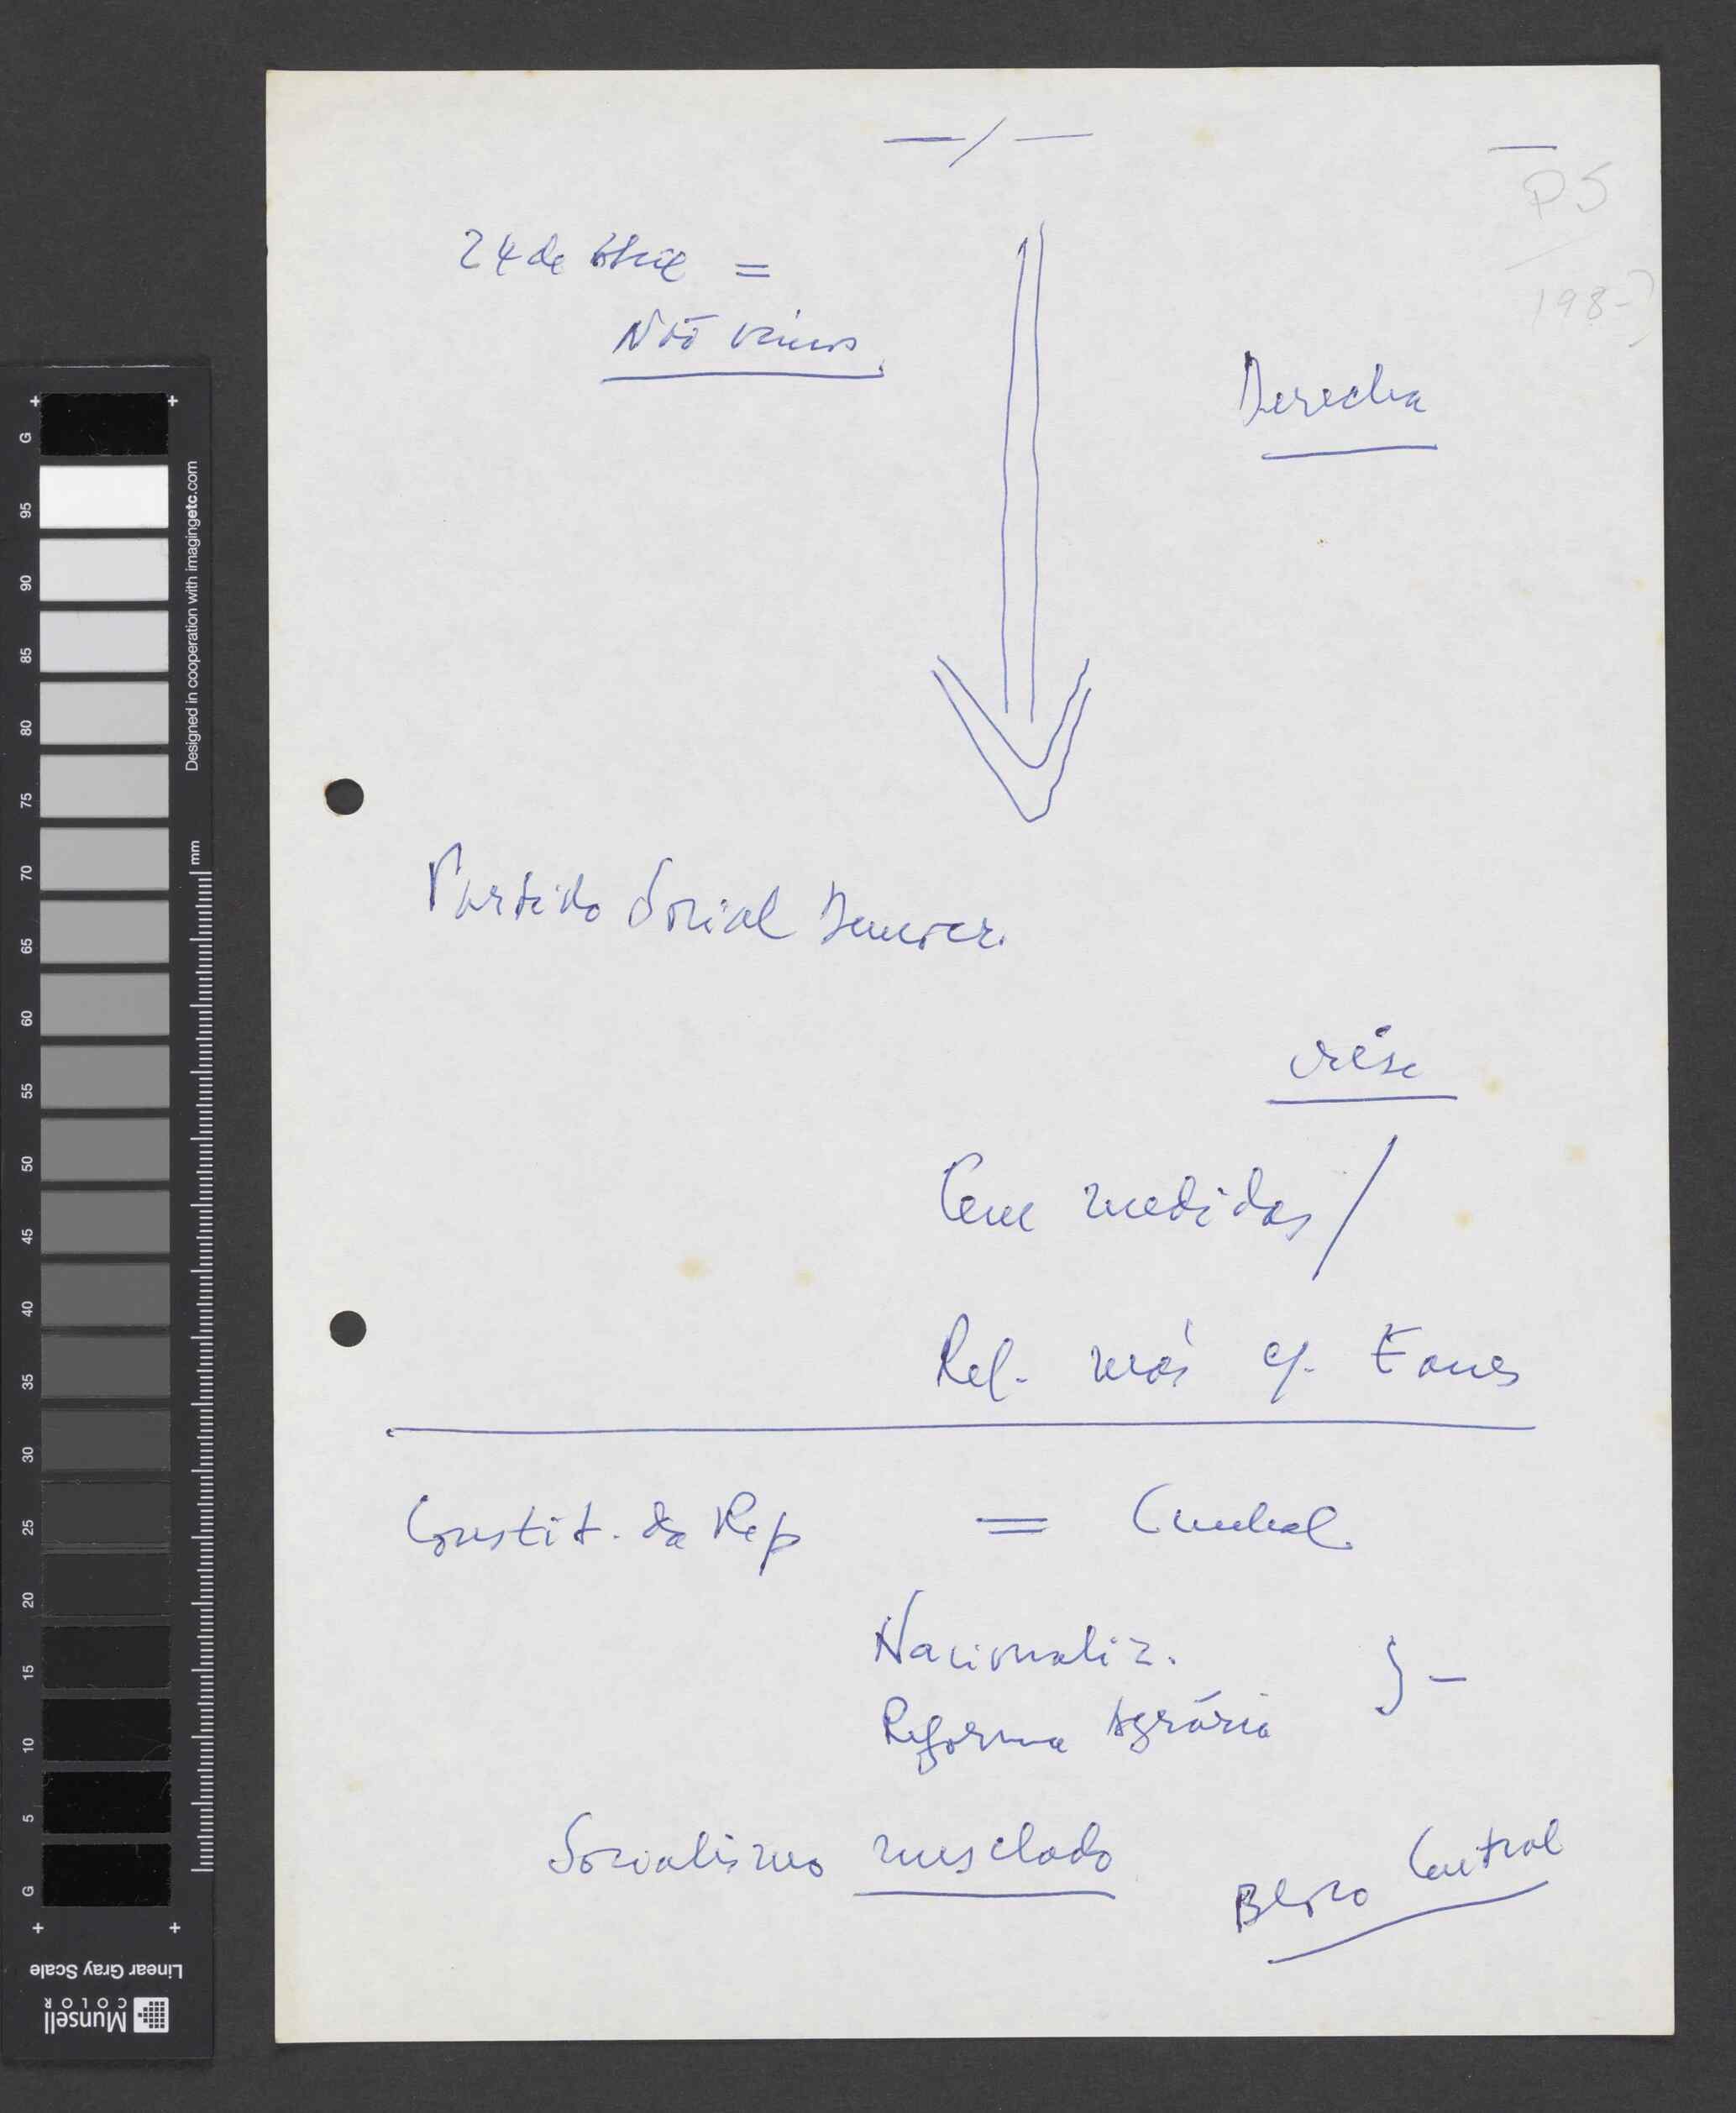 — / —
PS
198-?
24 de Abril =
Não vamos
Derecha
Partido Social Democr.
crise
Cem medidas /
Rel. más c/. Eanes
Constit. da Rep = Cunhal.
Nacionaliz. } -
Reforma Agrária
Socialismo mesclado
Bloco Central
G
95
90
85
80
75
70
65
60
55
50
45
40
35
30
25
20
15
10
5
G
mm
Designed in cooperation with imagingetc.com
Linear Gray Scale
Munsell
COLOR